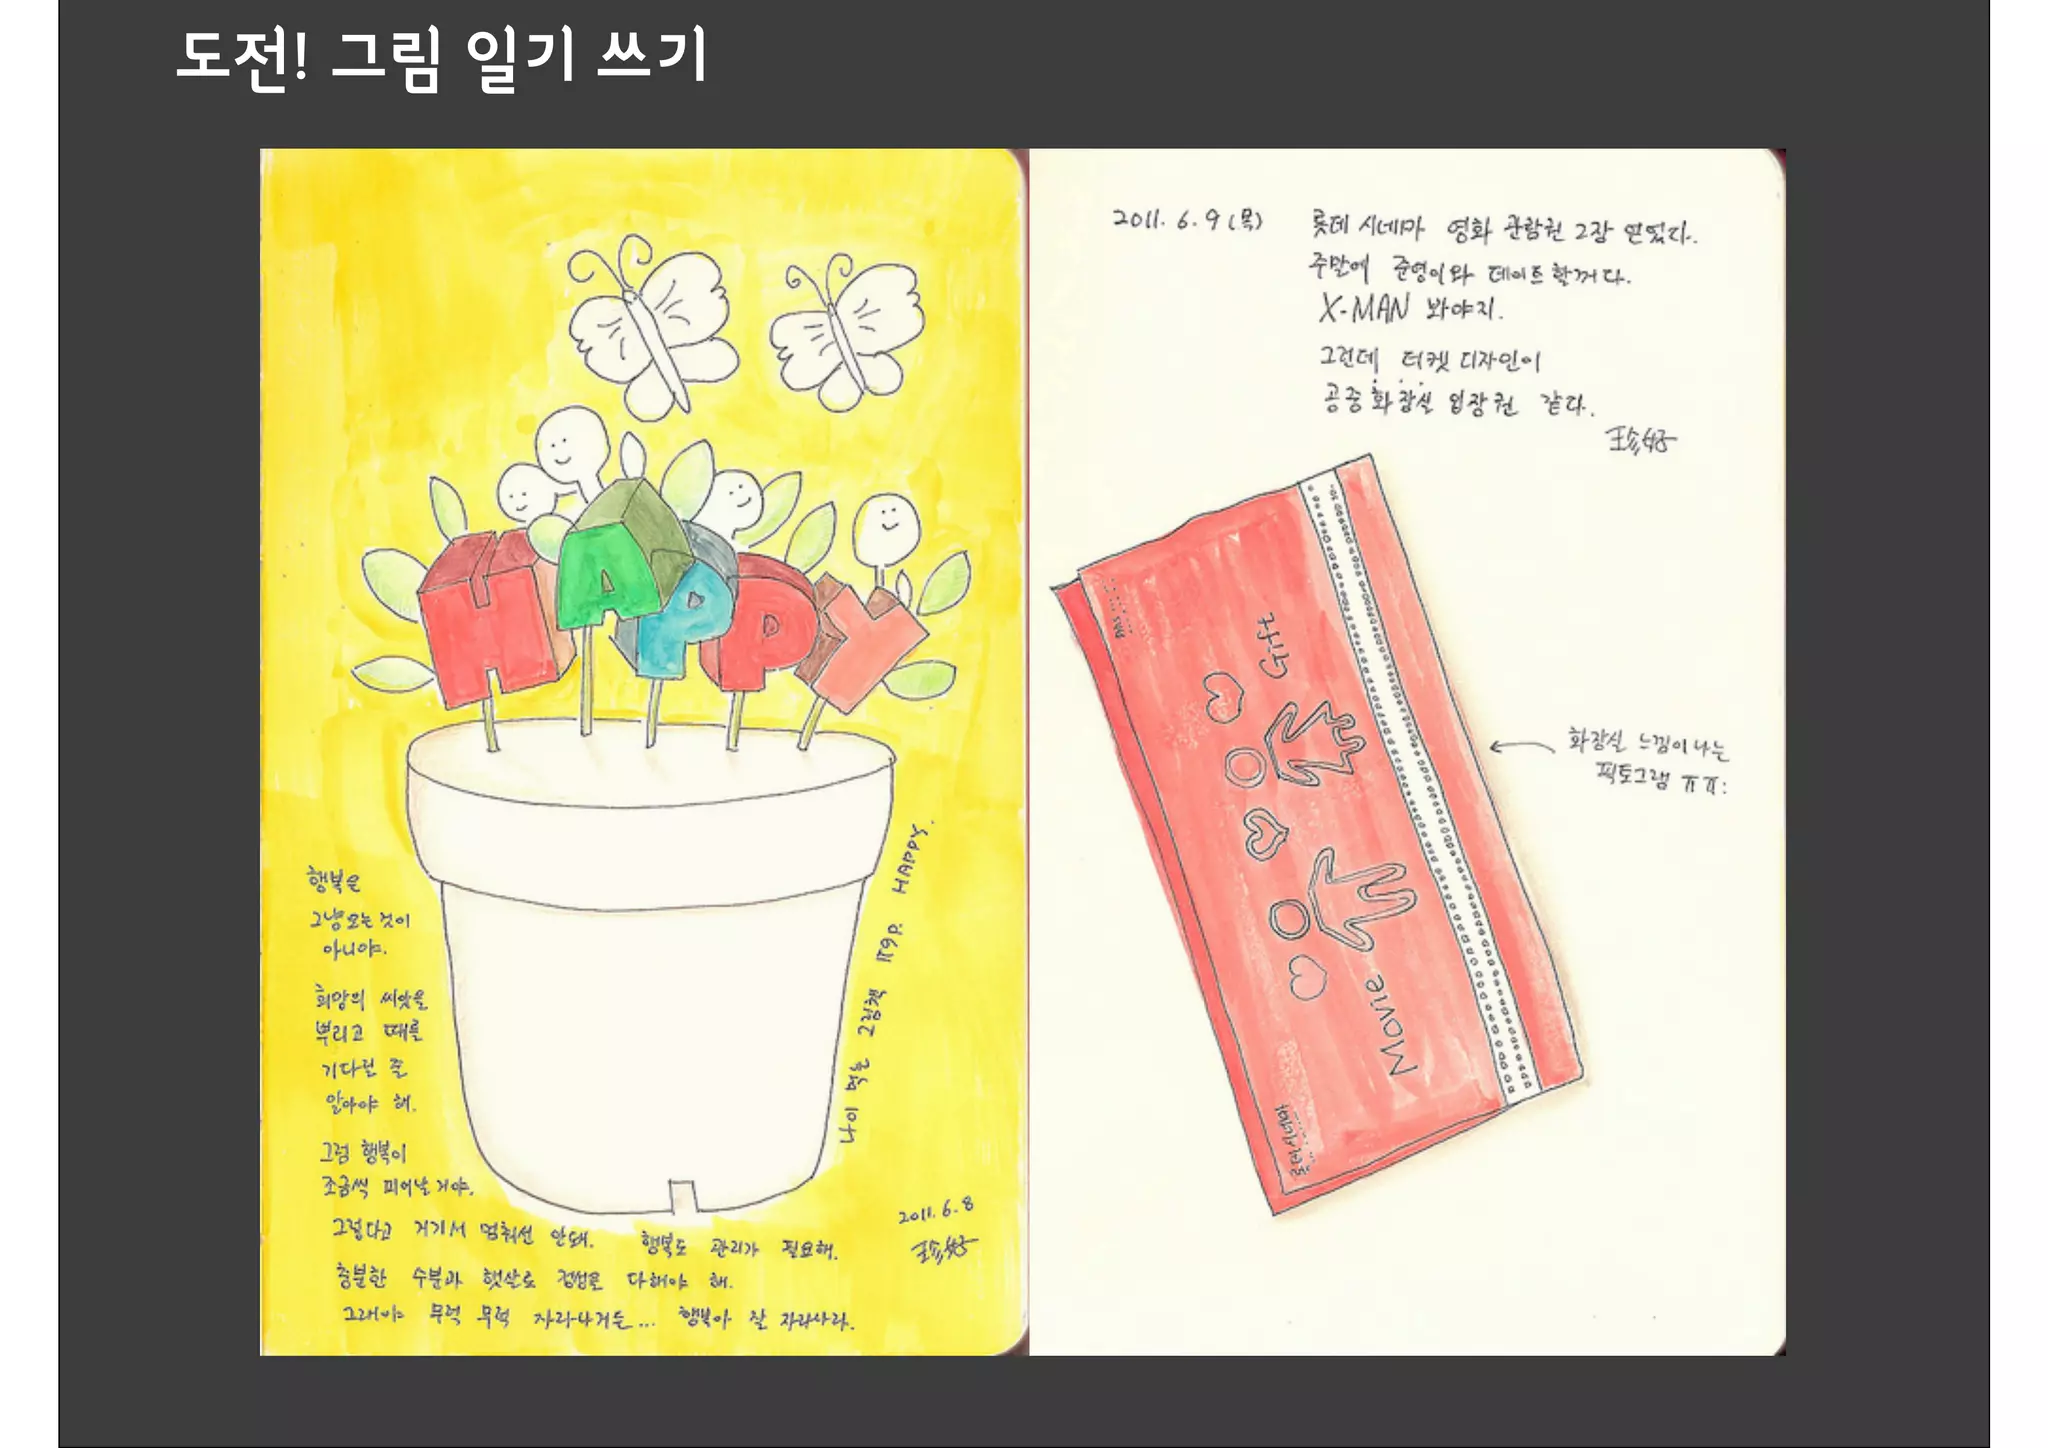 도전! 그림 일기 쓰기
HAPPY
행복은
그냥 오는 것이
아니야.
희망의 씨앗을
뿌리고 때를
기다릴 줄
알아야 해.
그럼 행복이
조금씩 피어날 거야.
그렇다고 거기서 멈춰선 안돼. 행복도 관리가 필요해.
충분한 수분과 햇살로 정성을 다해야 해.
그래야 무럭 무럭 자라나거든... 행복아 잘 자라나라.
나이 먹는 그림책 HAPPY.
2011.6.8
2011. 6. 9 (목) 롯데 시네마 영화 관람권 2장 얻었다.
주말에 준영이와 데이트 할꺼다.
X-MAN 봐야지.
그런데 티켓 디자인이
공중 화장실 입장권 같다.
Gift
Movie
롯데시네마
화장실 느낌이 나는
픽토그램 ㅠㅠ;